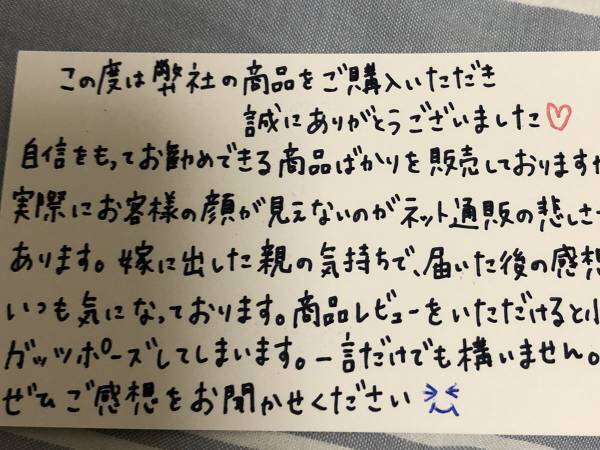 この度は弊社の商品をご購入いただき
誠にありがとうございました♡
自信をもってお勧めできる商品ばかりを販売しておりますが
実際にお客様の顔が見えないのがネット通販の悲しさ
あります。嫁に出した親の気持ちで、届いた後の感想
いつも気になっております。商品レビューをいただけると小
ガッツポーズしてしまいます。一言だけでも構いません。
ぜひご感想をお聞かせください